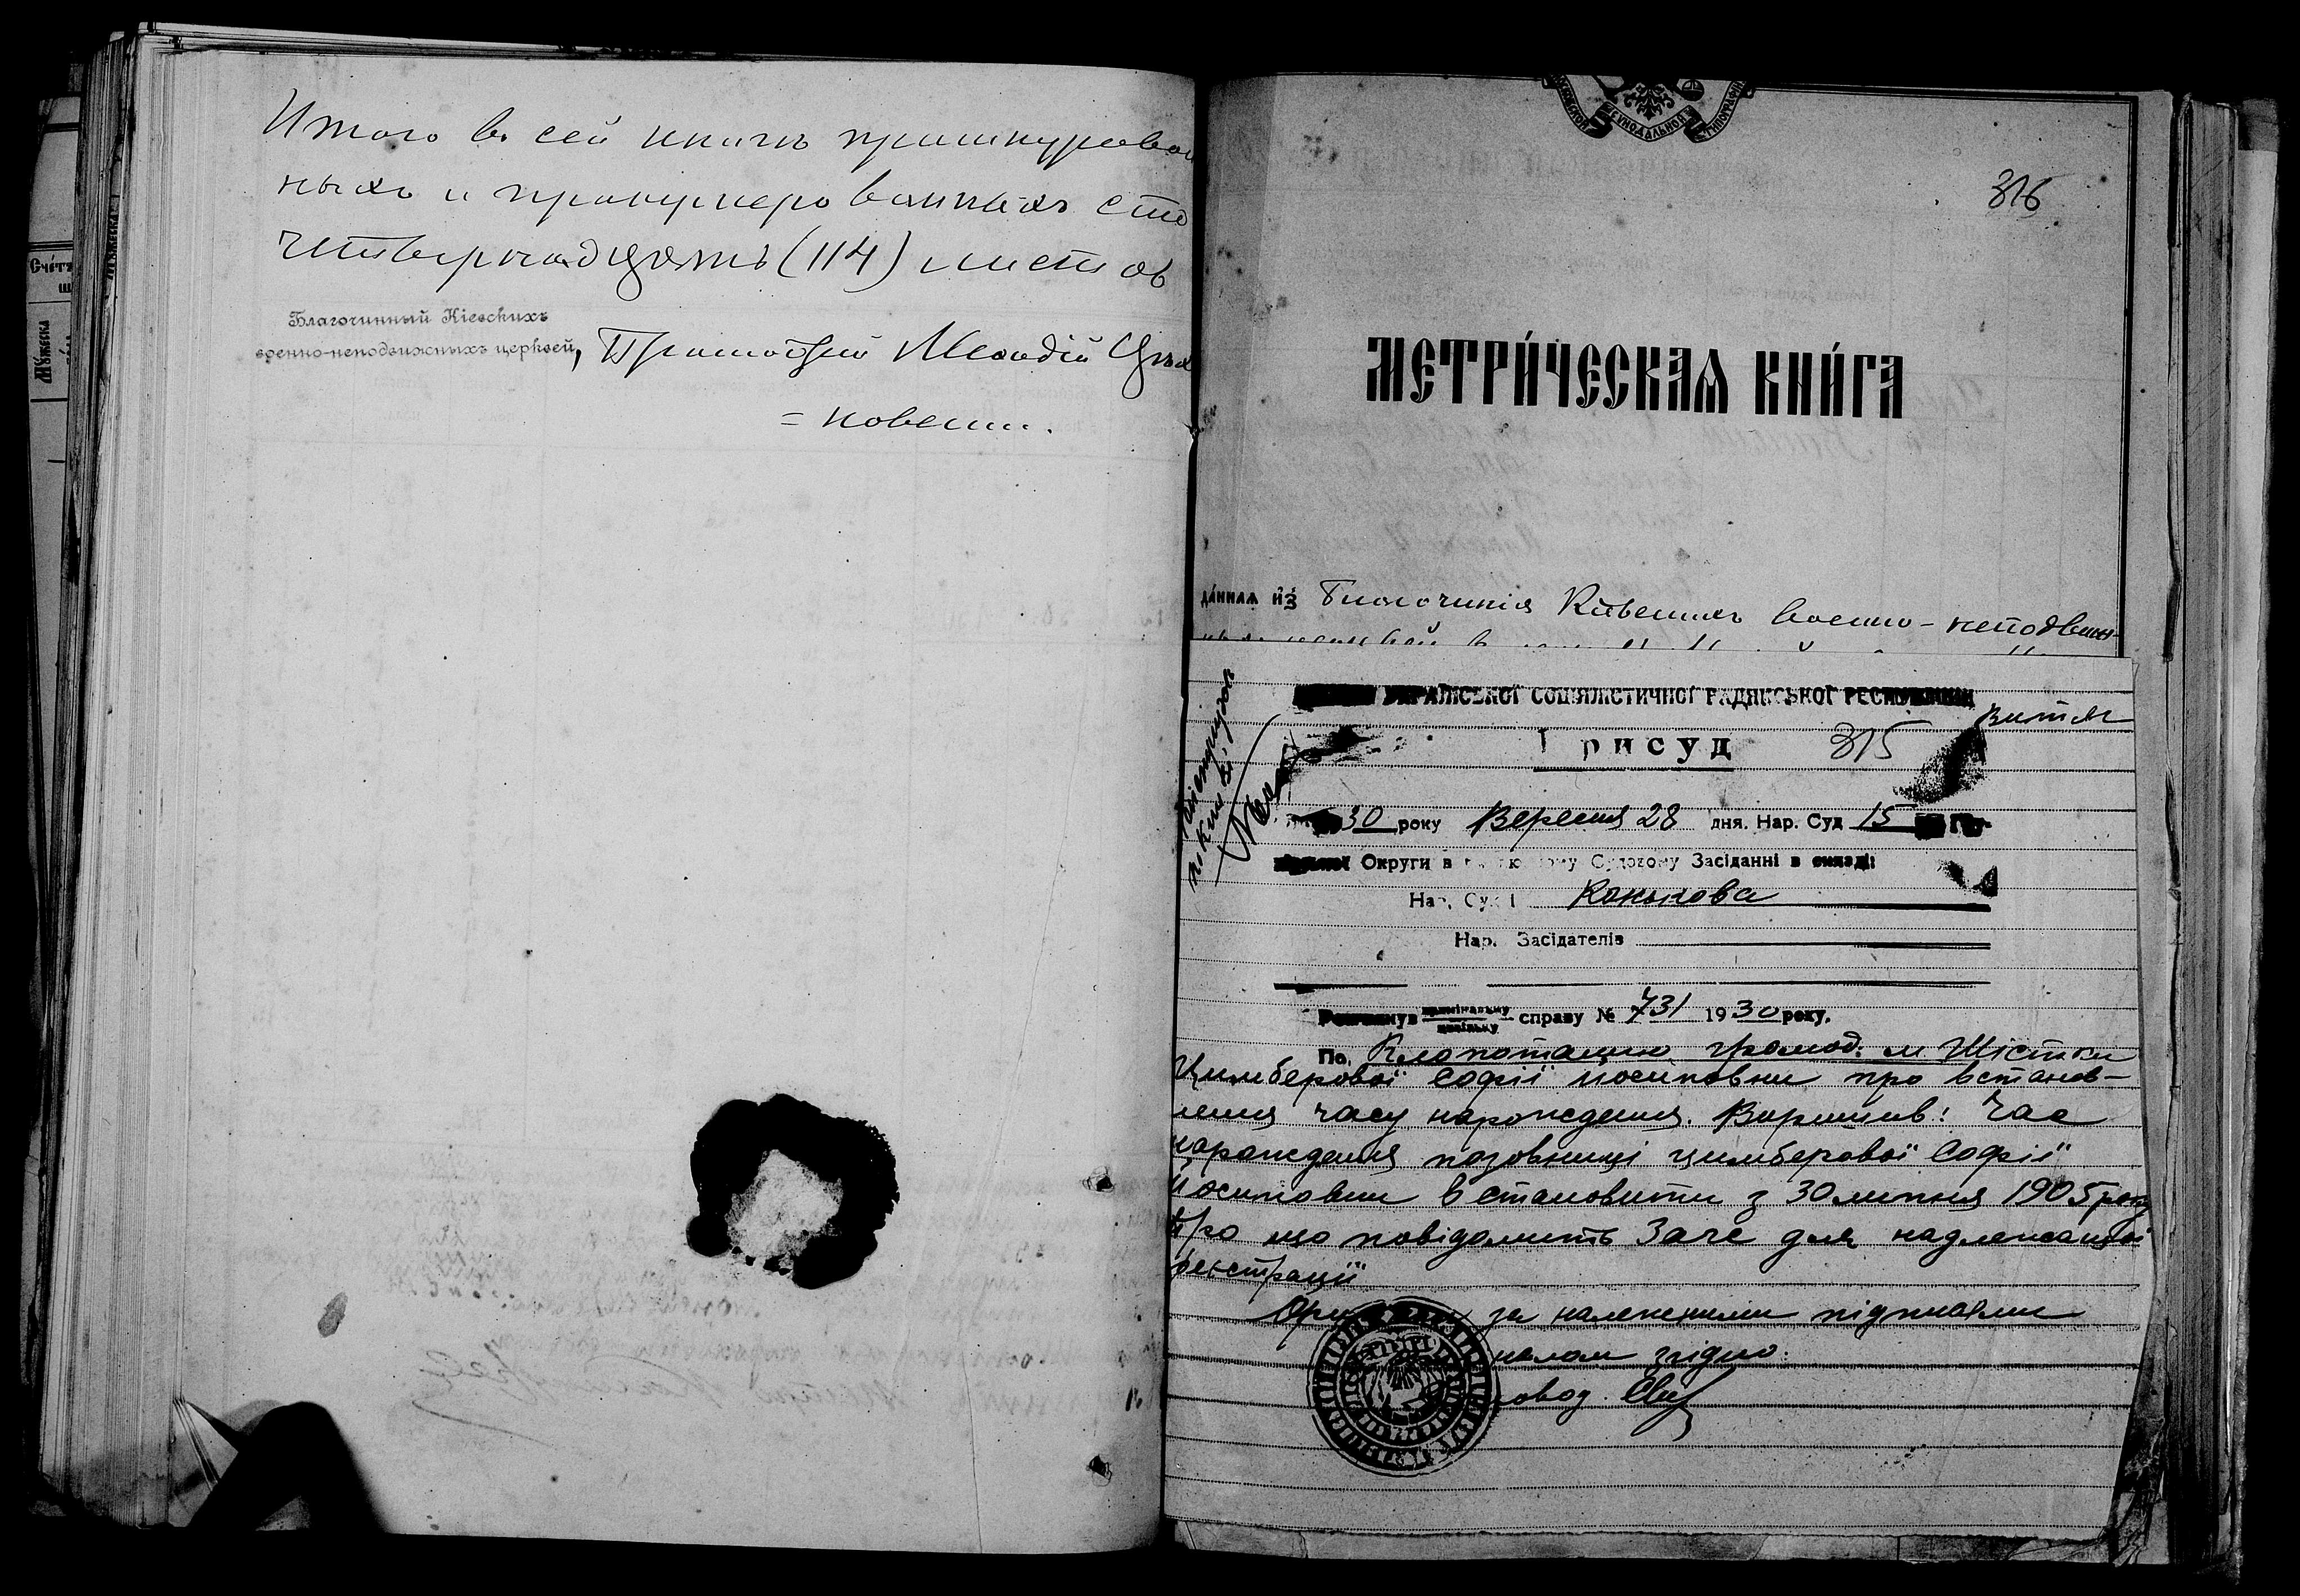 Итого въ сей книгѣ прошнурован
ныхъ и пронумерованныхъ сто
четырнадцать (114) листовъ
Благочинный Кіевскихъ
военно-неподвижныхъ церквей, Протоіерей
= новскій.
СИНОДАЛЬНОЙ ТИПОГРАФІИ
316
МЕТРИ́ЧЕСКАѦ КНИ́ГА
да́ннаѧ и҆з̾ Благочинія Кіевскихъ военно-неподвиж-
УКРАЇНСЬКОЇ СОЦІЯЛІСТИЧНОЇ РАДЯНСЬКОЇ РЕСПУБЛІКИ
Витяг
Присуд 315
30 року Вересня 28 дня. Нар. Суд 15
Округи в Судовому Засіданні в складі:
Нар. Судді Конькова
Нар. Засідателів
Розглянув кримінальну цивільну справу № 731 1930 року.
По Клопотанню громод. м Шістки
Цимберової Софії Йосиповни про встанов-
лення часу народження. Вирішив: Час
народження позовниці Цимберової Софії
Йосиповни встановити з 30 липня 1905 року
Про що повідомить Загс для надлежащої
реєстрації
за належними підписами
налом згідно:
овод.
Счётъ
Мꙋ́жеска